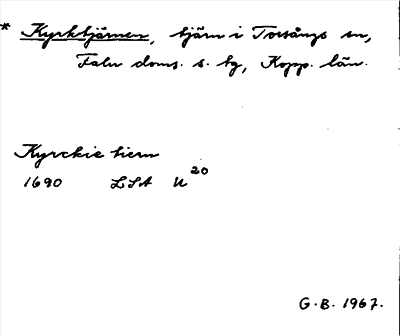 * Kyrktjärnen, tjärn i Torsångs sn,
Falu doms. s. tg, Kopp. län.
Kyrckie tiern
1690 LSA U 20
G.B. 1967.